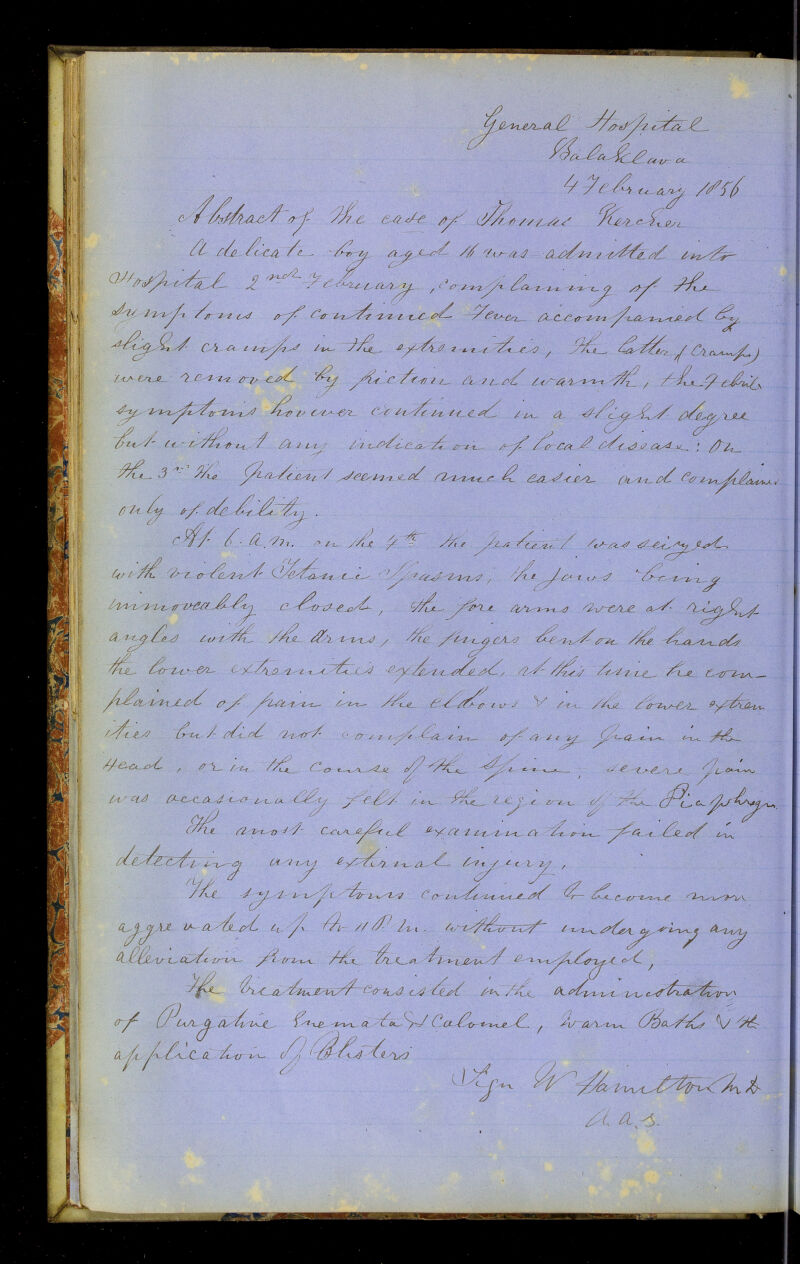 General Hospital
Balaklava
4 February 1856
Abstract of the case of Thomas Kercher
A delicate boy aged 16 was admitted into
Hospital 2nd February, complaining of the
symptoms of continued Fever accompanied by
slight cramps in the extremities, the latter (cramps)
were removed by friction and warmth, the Febrile
symptoms however continued in a slight degree
but without any indication of local disease: On
the 3rd the patient seemed much easier and complained
only of debility.
At 6. a.m. on the 4th the patient was seized
with violent Tetanic Spasms, the jaws being
immoveably closed, the fore arms were at right
angles with the Arms, the fingers bent on the hands
the lower extremities extended, at this time he com-
plained of pain in the elbows & in the lower extrem
ities but did not complain of any pain in the
Head, or in the course of the Spine, severe pain
was occasionally felt in the region of the Diaphragm
The most careful examination failed in
detecting any external injury.
The symptoms continued to become more
aggrevated up to 11 P.M. without undergoing any
alleviation from the treatment employed,
The treatment consisted in the administration
of Purgative Enemata & Calomel, Warm Baths & the
application of Blisters
Sign W Hamilton MD
A.A.S.